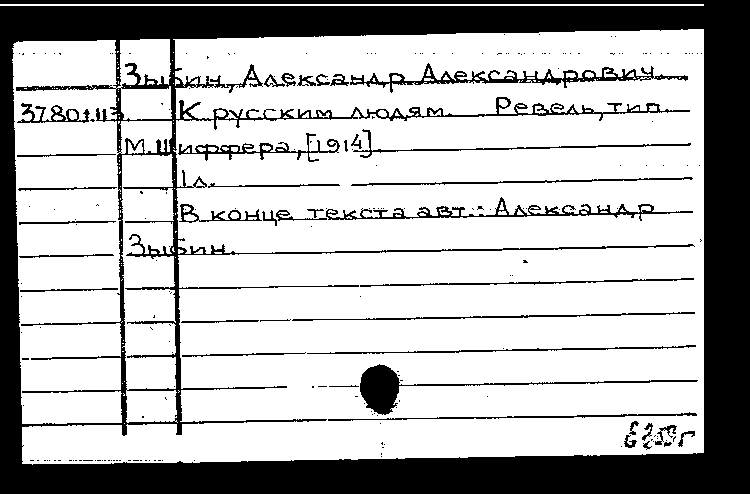 Зыбин, Александр Александрович
37.80.1.113. К русским людям. Ревель, тип.
М. Шиффера, [1914].
1 л.
В конце текста авт.: Александр
Зыбин.